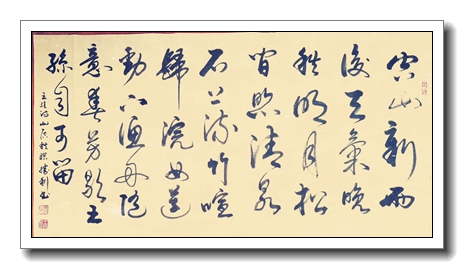 空山新雨
後天氣晚
秋明月松
間照清泉
石上流竹喧
歸浣女蓮
動下漁舟隨
意春芳歇王
孫自可留
王維詩山居秋暝勝利書